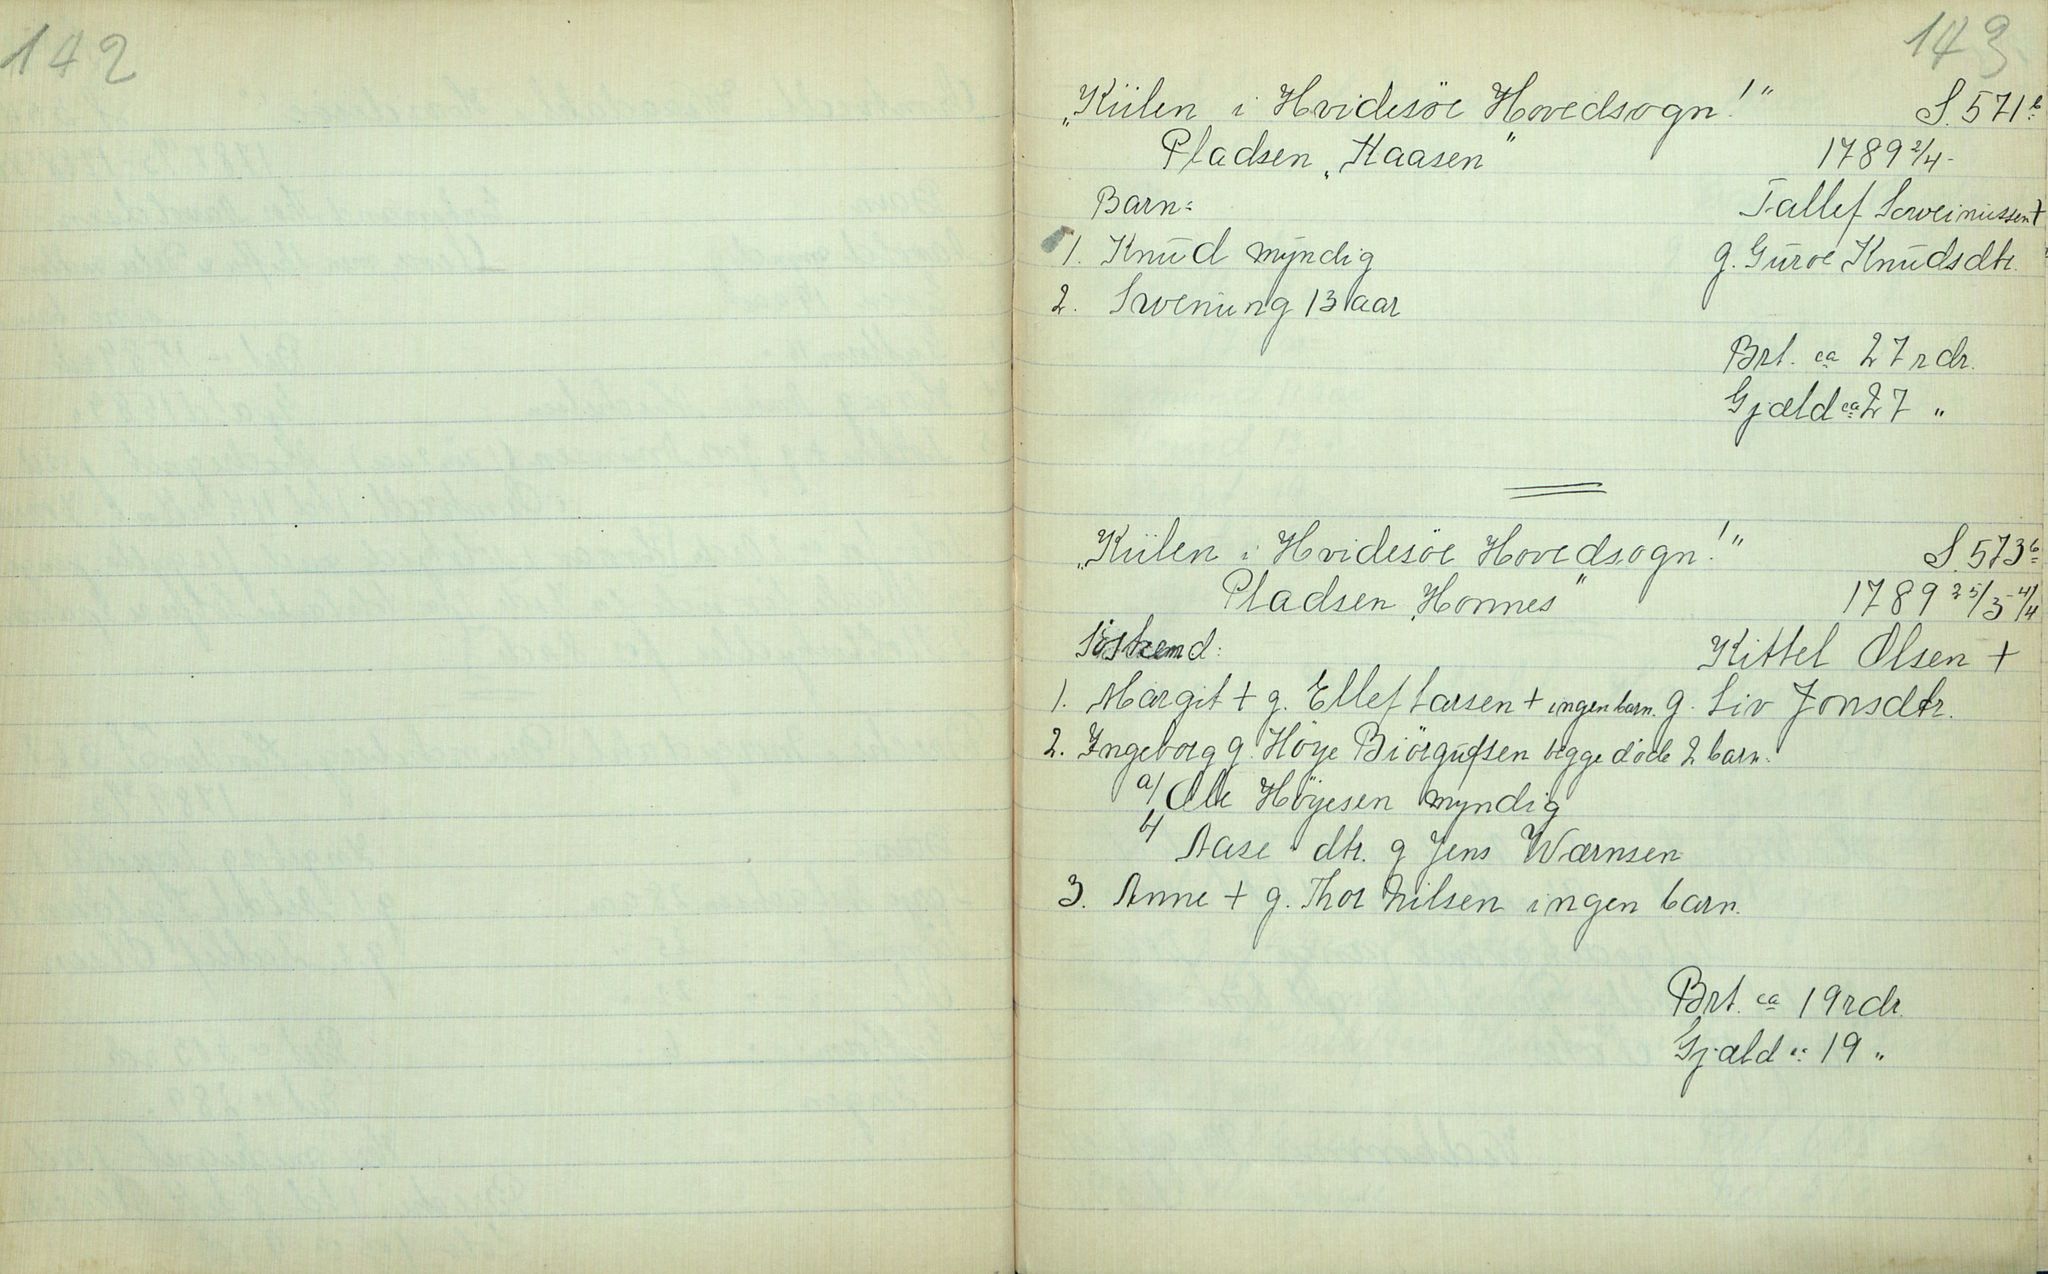 142
143
„Kiilen i Hvidesöe Hovedsogn!" S. 571 b
Pladsen „Haasen" 1789 2/4-
Barn: Tallef Sweinussen +
1. Knud myndig g. Guroe Knudsdtr.
2. Swenung 13 aar
Brt. ca 27 rdr.
Gjæld ca 27 "
„Kiilen i Hvidesöe Hovedsogn!" S. 573 b
Pladsen „Honnes" 1789 25/3-4/4
Söskend: Kittel Olsen +
1. Margit + g. Ellef Larsen + ingen barn. g. Liv Jonsdtr.
2. Ingeborg g. Höye Biörgufsen begge döde 2 barn.
a/ Ole Höyesen myndig
b/ Aase dtr. g Jens Wærnsen
3. Anne + g. Thor Nilsen ingen barn.
Brt. ca 19 rdr.
Gjæld " 19 "